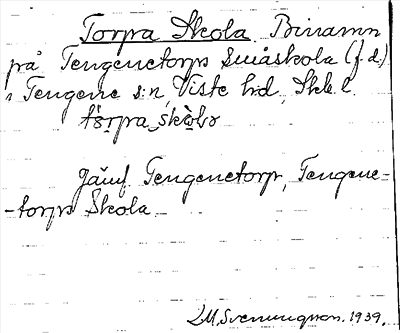 Torpa Skola Binamn
på Tengenetorps Småskola (f.d.)
i Tengene s:n, Viste hd, Skb. l.
tɔ̀rpa skòlɔ
Jämf Tengenetorp, Tengene-
-torps Skola
L.M. Svenungsson. 1939.